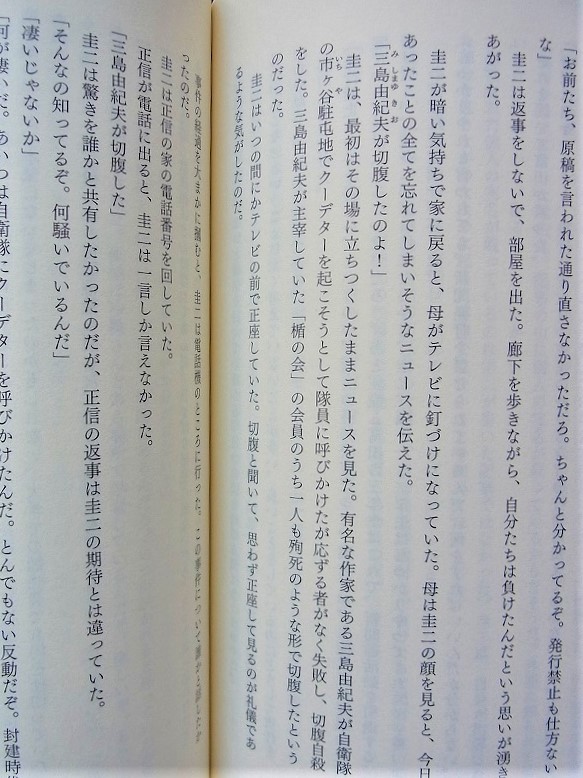 「お前たち、原稿を言われた通り直さなかっただろ。ちゃんと分かってるぞ。発行禁止も仕方ない
な」
圭二は返事をしないで、部屋を出た。廊下を歩きながら、自分たちは負けたんだという思いが湧き
あがった。
圭二が暗い気持ちで家に戻ると、母がテレビに釘づけになっていた。母は圭二の顔を見ると、今日
あったことの全てを忘れてしまいそうなニュースを伝えた。
「三島由紀夫が切腹したのよ！」
みしまゆきお
圭二は、最初はその場に立ちつくしたままニュースを見た。有名な作家である三島由紀夫が自衛隊
の市ヶ谷駐屯地でクーデターを起こそうとして隊員に呼びかけたが応ずる者がなく失敗し、切腹自殺
いちや
をした。三島由紀夫が主宰していた「楯の会」の会員のうち一人も殉死のような形で切腹したという
のだった。
圭二はいつの間にかテレビの前で正座していた。切腹と聞いて、思わず正座して見るのが礼儀であ
るような気がしたのだ。
事件の経過を大まかに掴むと、圭二は電話機のところに行った。この事件について誰かと話したか
ったのだ。
圭二は正信の家の電話番号を回していた。
正信が電話に出ると、圭二は一言しか言えなかった。
「三島由紀夫が切腹した」
圭二は驚きを誰かと共有したかったのだが、正信の返事は圭二の期待とは違っていた。
「そんなの知ってるぞ。何騒いでいるんだ」
「凄いじゃないか」
「何が凄いだ。あいつは自衛隊にクーデターを呼びかけたんだ。とんでもない反動だぞ。封建時